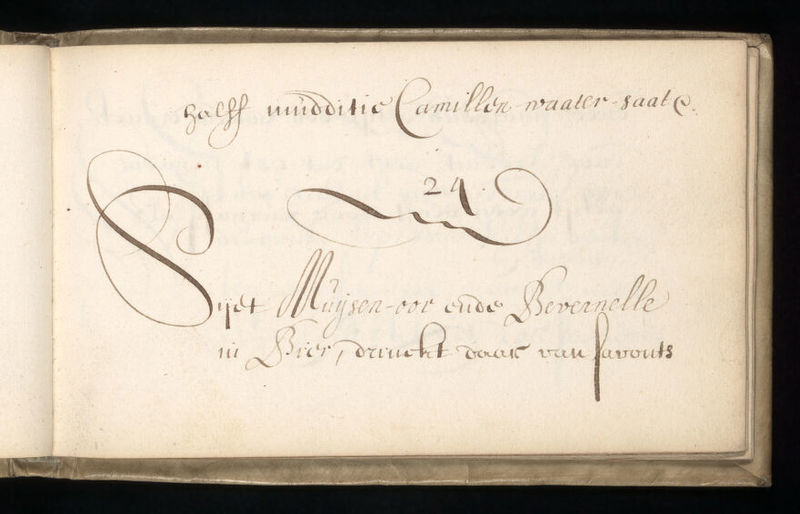 halff mudditie Camillen-waater-saat
24
Sijet Muijsen-oor ende Bevernelle
in Bier, drinckt daar van savonts